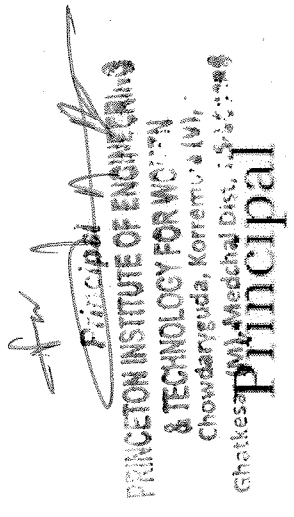 for
Principal
PRINCETON INSTITUTE OF ENGINEERING
& TECHNOLOGY FOR WOMEN
Chowdaryguda, Korremula (V),
Ghatkesar (M), Medchal Dist,
Principal